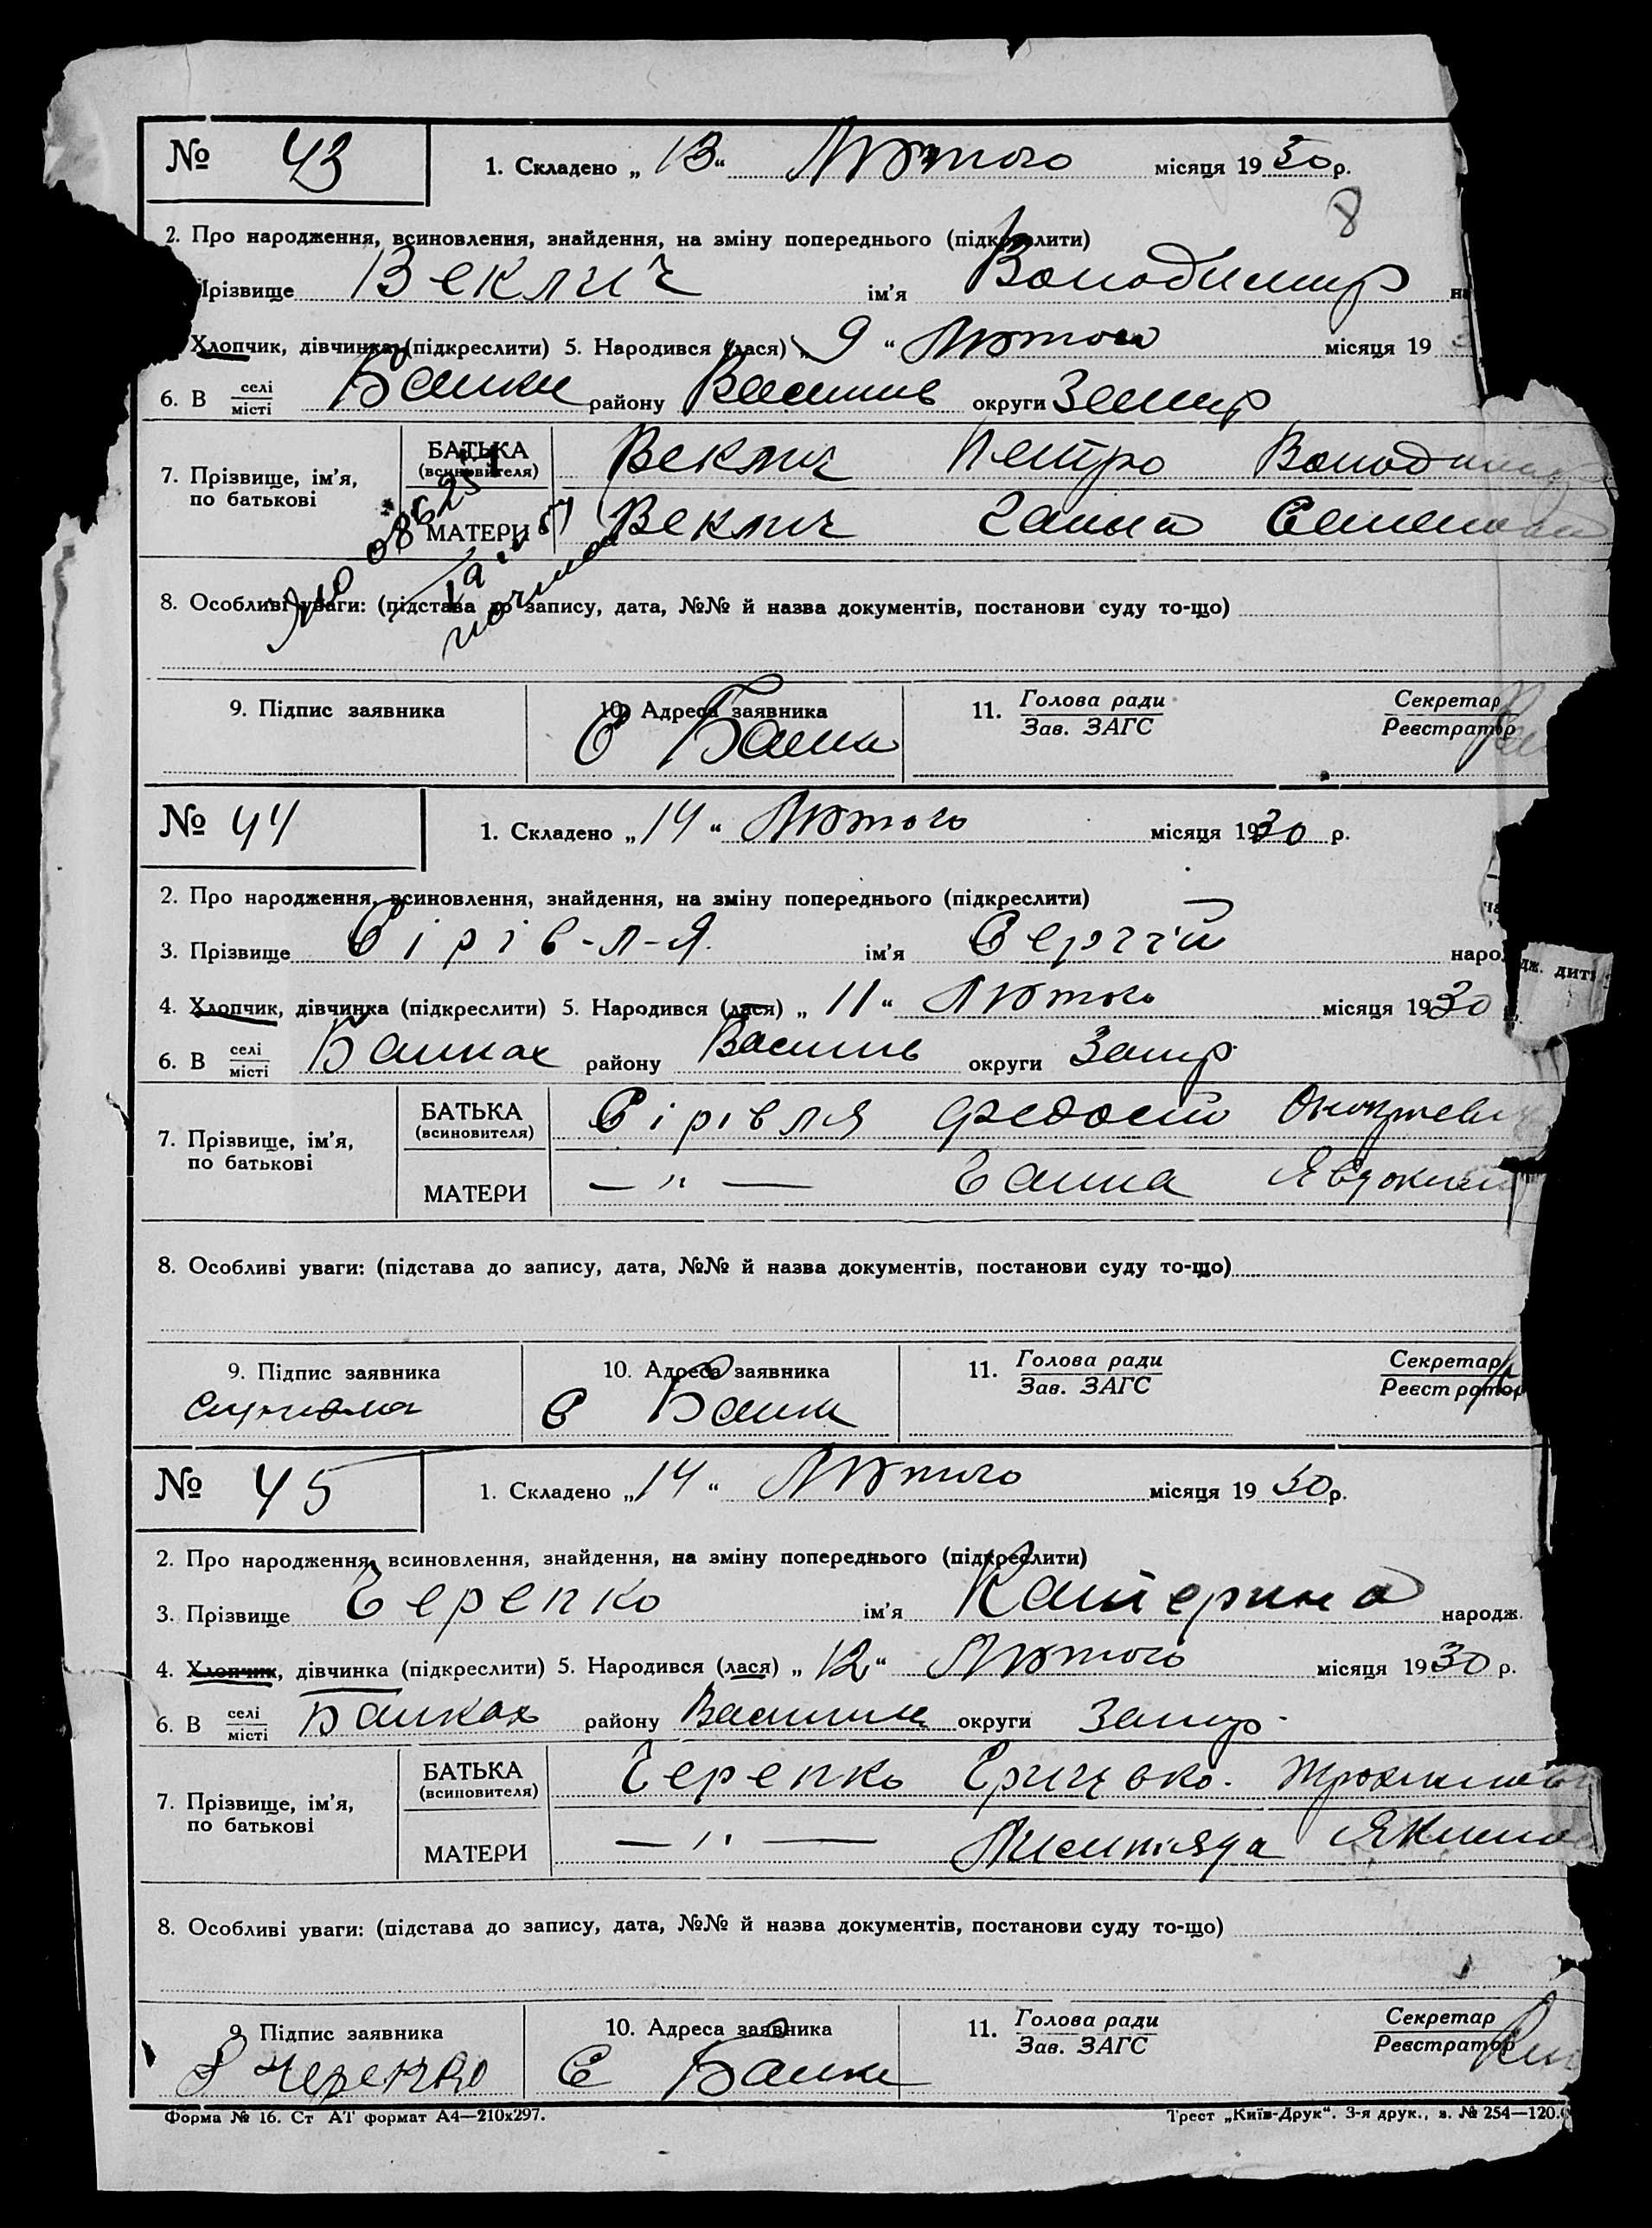 № 43 1. Складено „ 13 “ Лютого місяця 19 30 р.
8
2. Про народження, всиновлення, знайдення, на зміну попереднього (підкреслити)
Прізвище Веклич ім’я Володимир
Хлопчик, дівчинка (підкреслити) 5. Народився (лася) „ 9 “ Лютого місяця 19 3
6. В селі/місті Балки району Василів округи Запор
7. Прізвище, ім’я, по батькові
БАТЬКА (всиновителя) Веклич Петро Володими
МАТЕРИ Веклич Ганна Семен
8. Особливі уваги: (підстава до запису, дата, №№ й назва документів, постанови суду то-що)
9. Підпис заявника 10. Адреса заявника 11. Голова ради/Зав. ЗАГС Секретар/Реєстратор
С Балки
№ 44 1. Складено „ 14 “ Лютого місяця 19 30 р.
2. Про народження, всиновлення, знайдення, на зміну попереднього (підкреслити)
3. Прізвище Сірів-л-я ім’я Сергій наро
дж. дит
4. Хлопчик, дівчинка (підкреслити) 5. Народився (лася) „ 11 “ Лютого місяця 19 30
6. В селі/місті Балках району Василів округи Запор
7. Прізвище, ім’я, по батькові
БАТЬКА (всиновителя) Сірівля Федосій
МАТЕРИ — „ — Ганна Явдоким
8. Особливі уваги: (підстава до запису, дата, №№ й назва документів, постанови суду то-що)
9. Підпис заявника 10. Адреса заявника 11. Голова ради/Зав. ЗАГС Секретар/Реєстратор
С Балки
№ 45 1. Складено „ 14 “ Лютого місяця 19 30 р.
2. Про народження, всиновлення, знайдення, на зміну попереднього (підкреслити)
3. Прізвище Черепко ім’я Катерина народж.
4. Хлопчик, дівчинка (підкреслити) 5. Народився (лася) „ 12 “ Лютого місяця 19 30 р.
6. В селі/місті Балках району Василів округи Запор
7. Прізвище, ім’я, по батькові
БАТЬКА (всиновителя) Черепко Грицько Трохимов
МАТЕРИ — „ — Яким
8. Особливі уваги: (підстава до запису, дата, №№ й назва документів, постанови суду то-що)
9. Підпис заявника 10. Адреса заявника 11. Голова ради/Зав. ЗАГС Секретар/Реєстратор
Черепко С Балки
Форма № 16. Ст АТ формат А4—210х297. Трест „Київ-Друк“. 3-я друк., з. № 254—120.